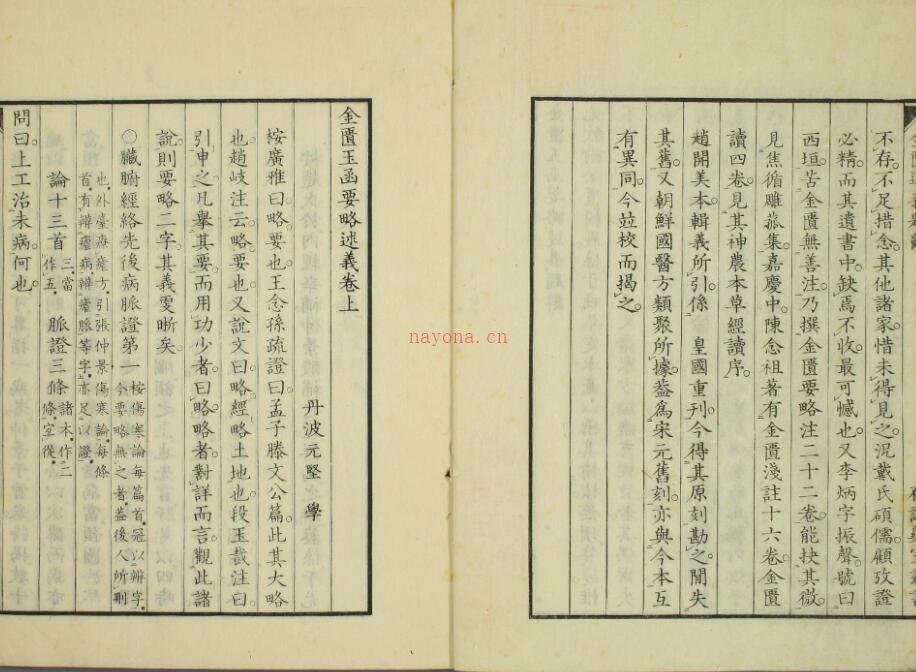 不存。不足措念。其他諸家。惜未得見之。況戴氏碩儒。顧攷證
必精。而其遺書中。缺焉不收。最可憾也。又李炳字振聲。號曰
西垣。苦金匱無善注。乃撰金匱要略注二十二卷。能抉其微。
見焦循雕菰集。嘉慶中。陳念祖著有金匱淺註十六卷。金匱
讀四卷。見其神農本草經讀序。
趙開美本。輯義所引。係 皇國重刊。今得其原刻勘之。間失
其舊。又朝鮮國醫方類聚所據。葢爲宋元舊刻。亦與今本互
有異同。今竝校而揭之。
金匱玉函要略述義卷上
丹波元堅 學
桉廣雅曰。略。要也。王念孫疏證曰。孟子滕文公篇。此其大略
也。趙岐注云。略。要也。又說文曰。略。經略土地也。段玉裁注曰。
引申之。凡舉其要而用功少者。曰略。略者。對詳而言。觀此諸
說。則要略二字。其義雯晰矣。
○臟腑經絡先後病脈證第一 桉傷寒論每篇首。冠以辨字。
今要略無之者。葢後人所刪
也。外臺療瘧方。引張仲景傷寒論。每條
首。有辨瘧病。辨瘧脈等字。亦足以證。
論十三首 三。當作五。 脈證三條 諸本。作二條。宜從。
問曰。上工治未病。何也。
nayona.cn